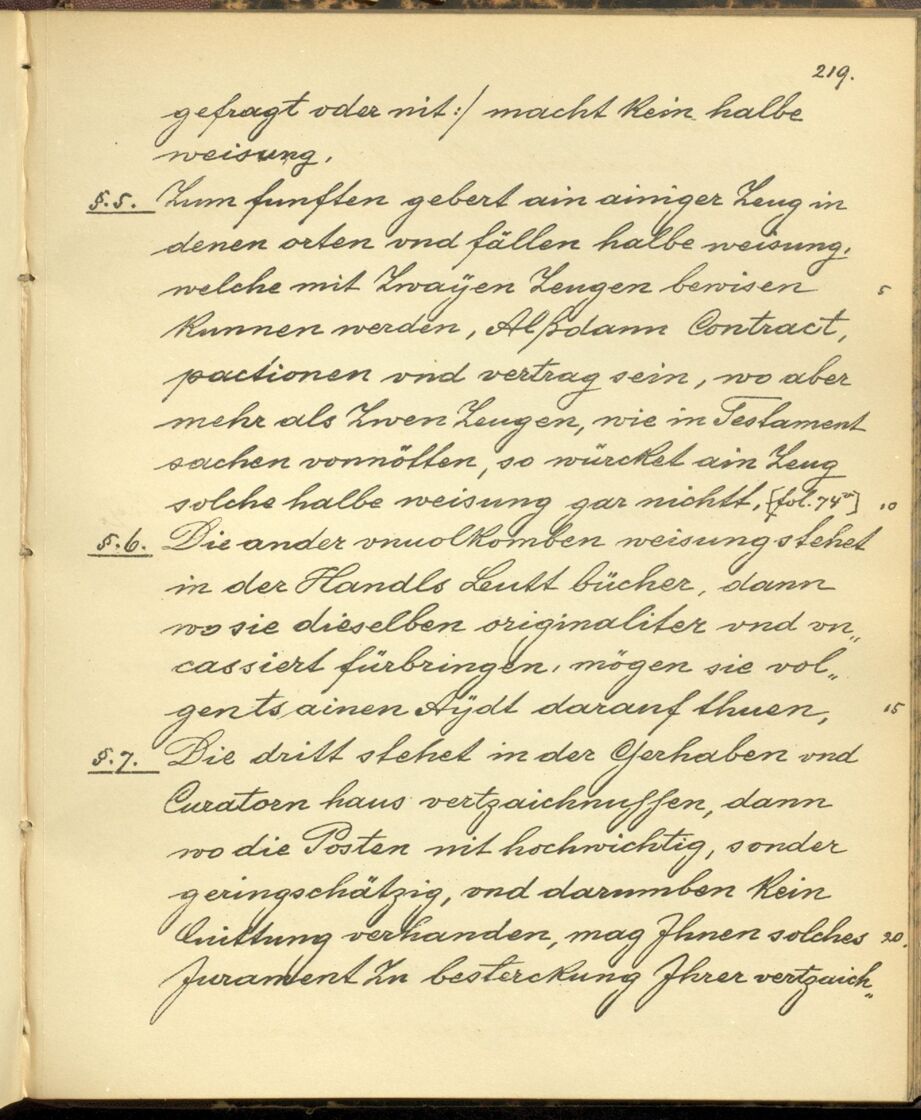 219.
gefragt oder nit:/ macht kein halbe
weisung.
§.5. Zum funften gebert ain ainiger Zeug in
denen orten vnd fällen halbe weisung,
welche mit Zwaÿen Zeugen bewisen 5
kunnen werden, Alßdann Contract,
pactionen vnd vertrag sein, wo aber
mehr als Zwen Zeugen, wie in Testament
sachen vonnötten, so würcket ain Zeug
solche halbe weisung gar nichtt. [fol. 74v] 10
§.6. Die ander vnuolkomben weisung stehet
in der Handls Leutt bücher, dann
wo sie dieselben originaliter vnd vn„
cassiert fürbringen, mögen sie vol„
gents ainen Aÿdt darauf thuen, 15
§.7. Die dritt stehet in der Gerhaben vnd
Curatorn haus vertzaichnussen, dann
wo die Posten nit hochwichtig, sonder
geringschätzig, vnd darumben kein
Quittung verhanden, mag Jhnen solches 20.
Jurament Zu besterckung Jhrer vertzaich„